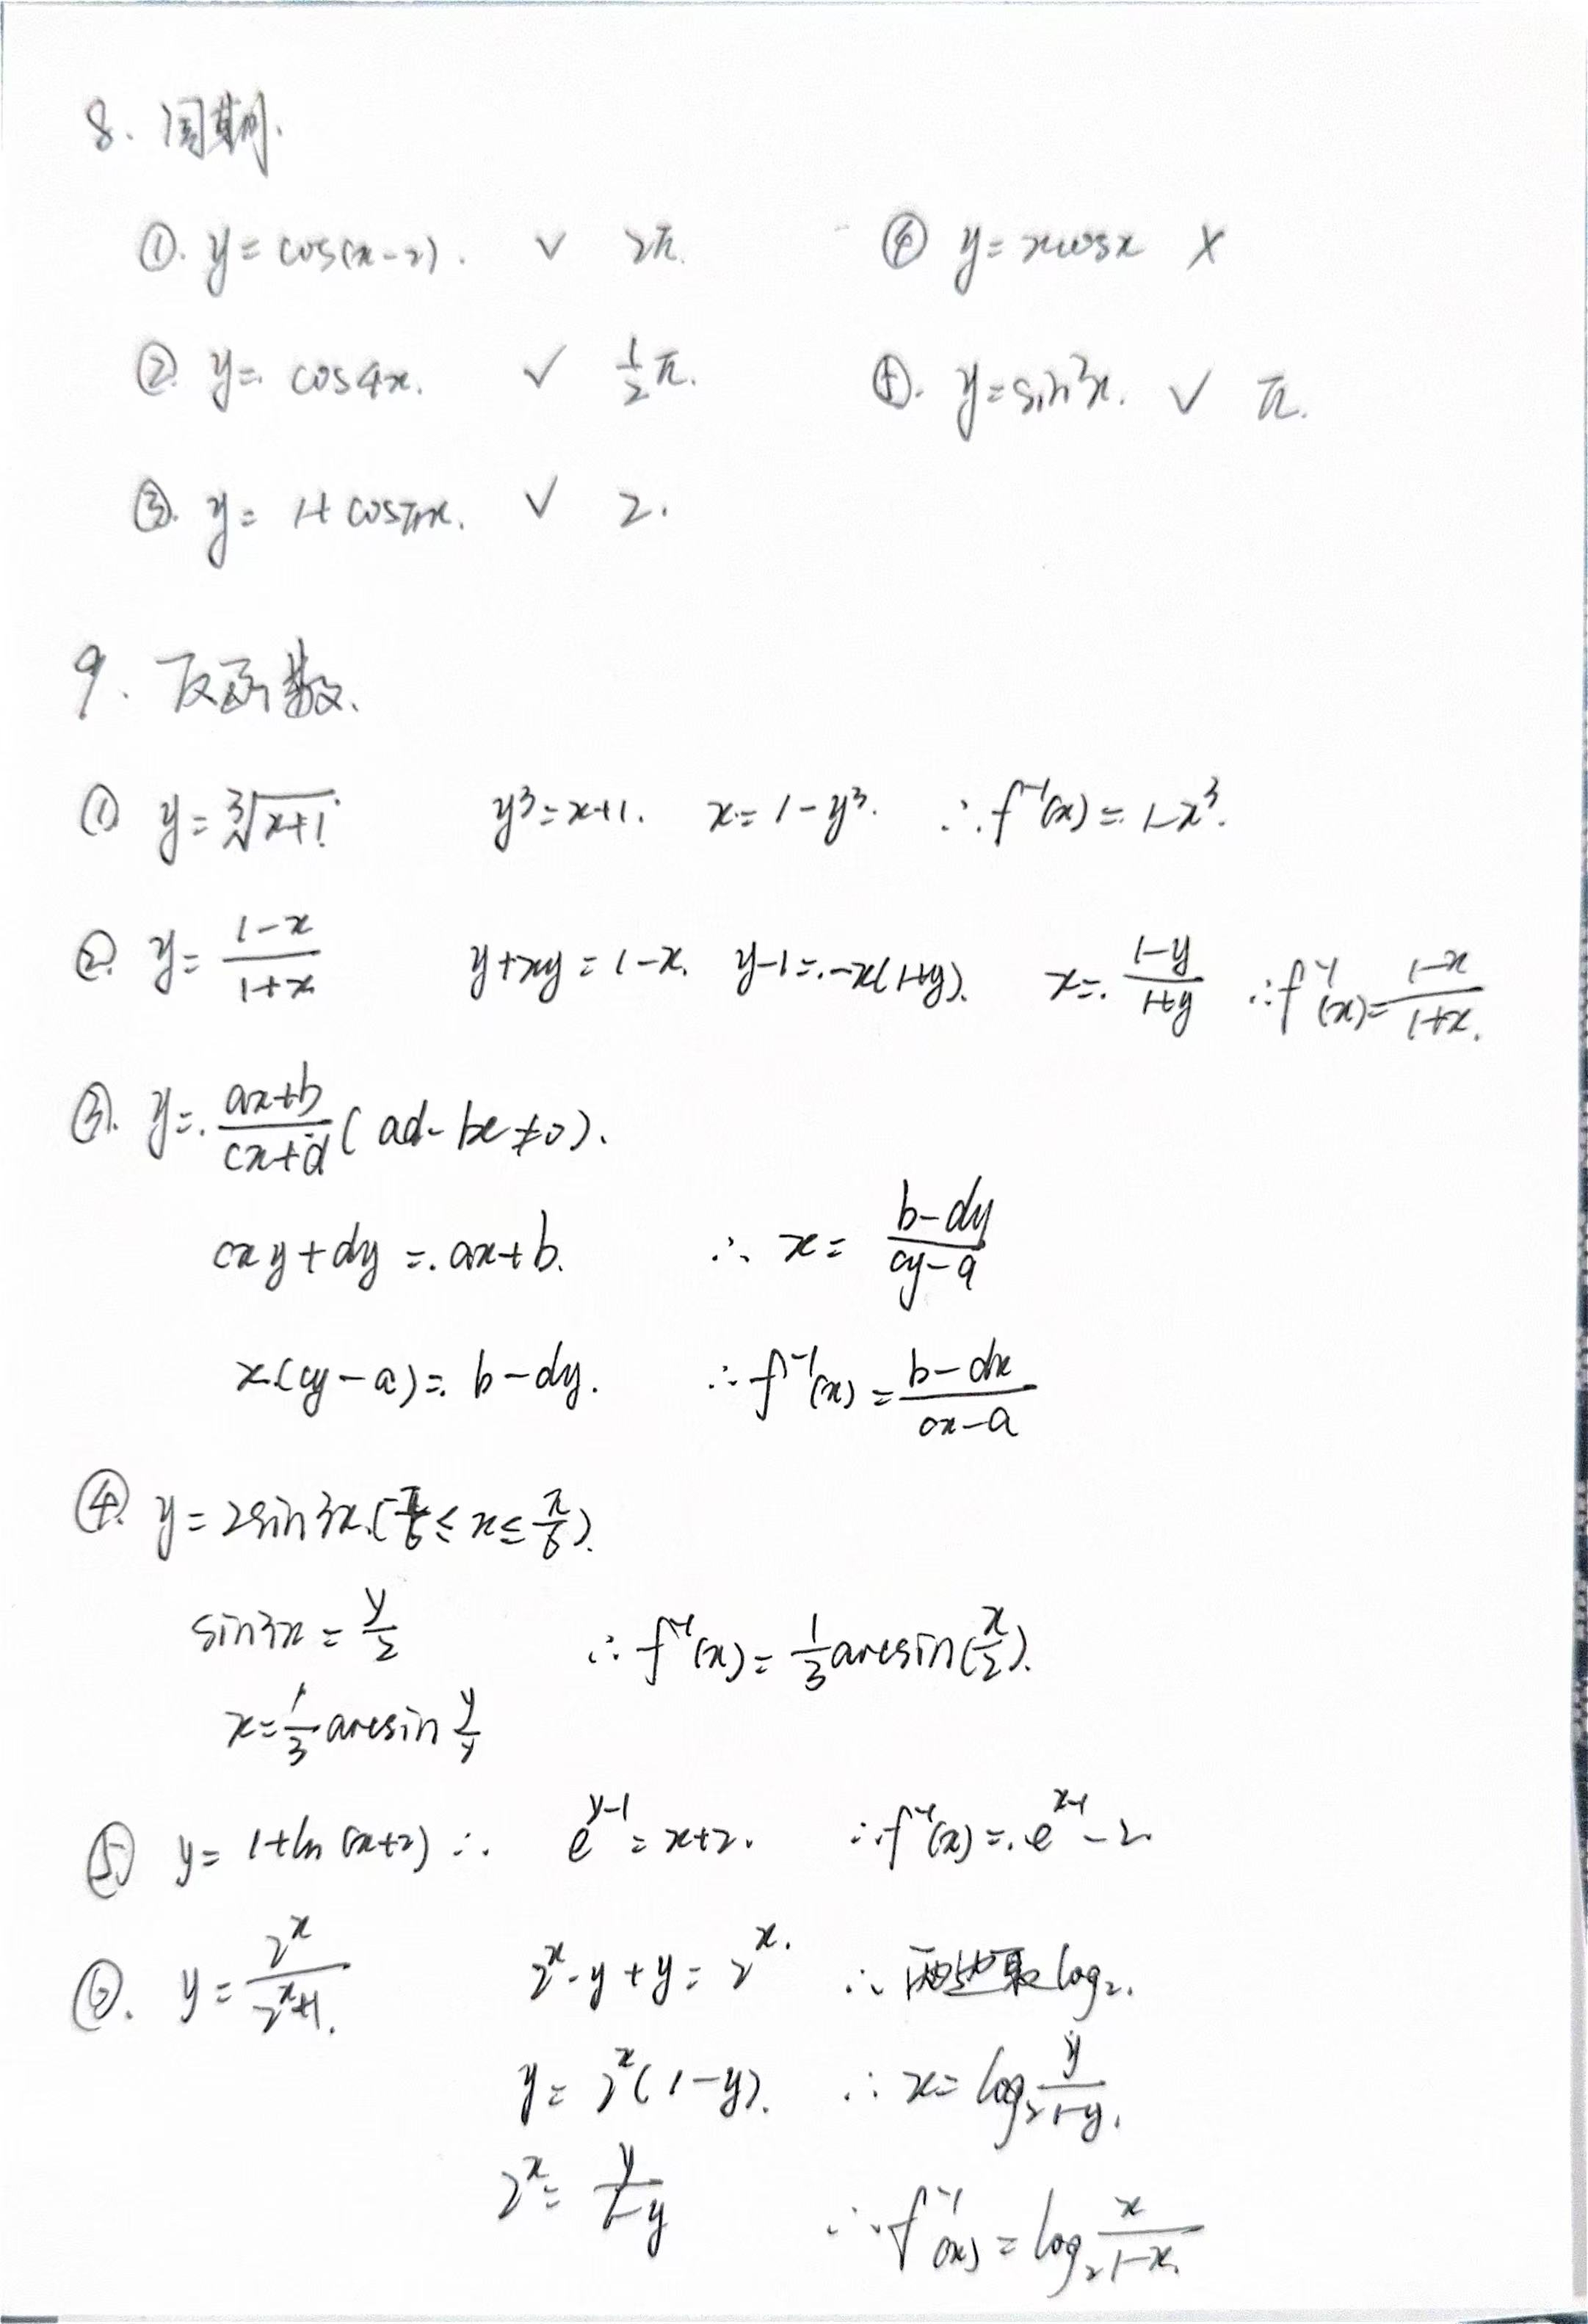 8. 周期.
①. y = cos(x-2). √ 2π. ④ y = xcosx ×
② y = cos4x. √ 1/2 π. ⑤. y = sin²x. √ π.
③. y = 1+cosπx. √ 2.
9. 反函数.
① y = ∛(x+1) y³=x+1. x = 1-y³. ∴ f⁻¹(x) = 1-x³.
② y = (1-x)/(1+x) y+xy = 1-x. y-1 = -x(1+y). x = (1-y)/(1+y) ∴ f⁻¹(x) = (1-x)/(1+x).
③. y = (ax+b)/(cx+d) (ad-bc≠0).
cxy+dy = ax+b. ∴ x = (b-dy)/(cy-a)
x(cy-a) = b-dy. ∴ f⁻¹(x) = (b-dx)/(cx-a)
④. y = 2sin3x. (-π/6 ≤ x ≤ π/6).
sin3x = y/2 ∴ f⁻¹(x) = 1/3 arcsin(x/2).
x = 1/3 arcsin y/2
⑤ y = 1+ln(x+2) ∴ e^(y-1) = x+2. ∴ f⁻¹(x) = e^(x-1) - 2
⑥. y = 2^x/(2^x+1). 2^x·y+y = 2^x. ∴ 两边取log₂.
y = 2^x(1-y). ∴ x = log₂ y/(1-y).
2^x = y/(1-y) ∴ f⁻¹(x) = log₂ x/(1-x).